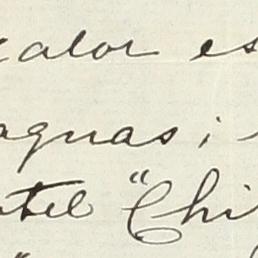 calor es
aguas; 
tel "Chi